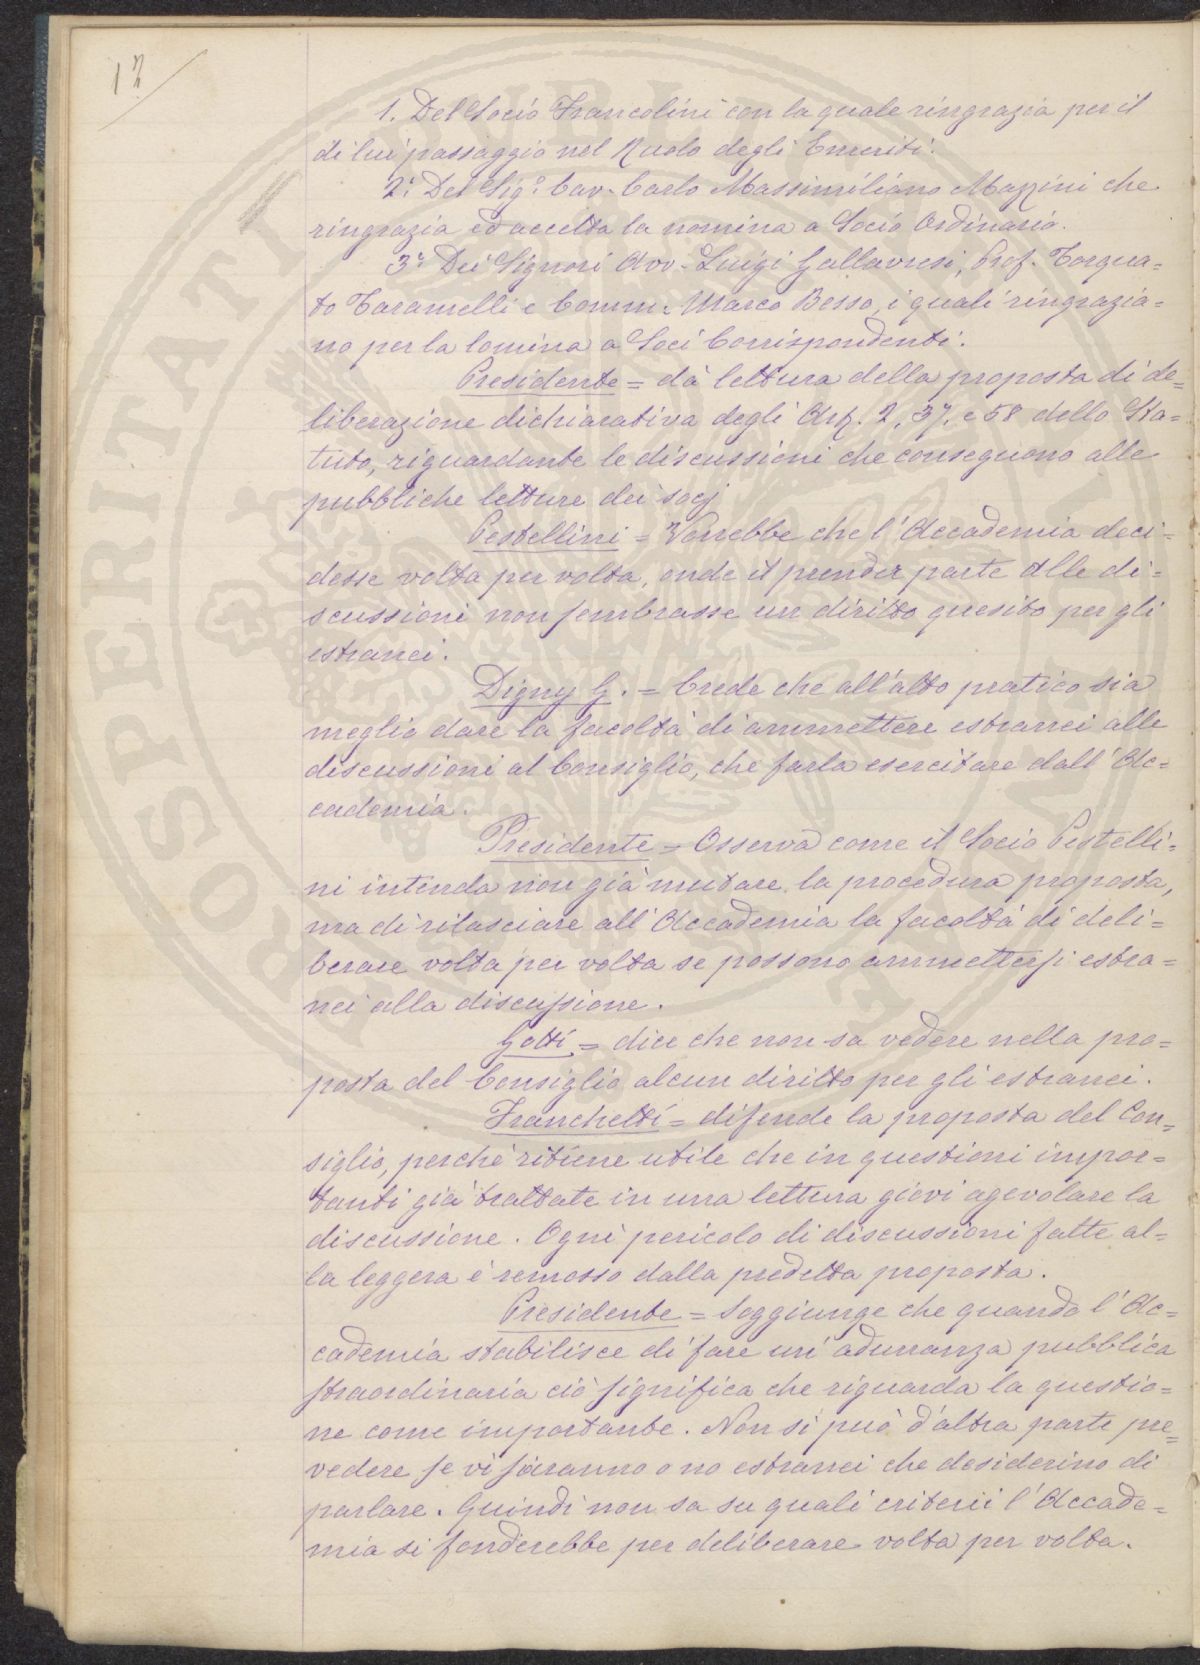 12
1. Del Socio Francolini con la quale ringrazia per il
di lui passaggio nel Ruolo degli Emeriti.
2.° Del Sig.r Cav. Carlo Massimiliano Mazzini che
ringrazia ed accetta la nomina a Socio Ordinario.
3.° Dei Signori Avv. Luigi Gallavresi, Prof. Torqua=
to Taramelli e Comm. Marco Besso, i quali ringrazia=
no per la lomina a Soci Corrispondenti.
Presidente = dà lettura della proposta di de=
liberazione dichiarativa degli Art. 2, 37, e 58 dello Sta=
tuto, riguardante le discussioni che conseguono alle
pubbliche letture dei socj
Pestellini = Vorrebbe che l'Accademia deci=
desse volta per volta, onde il prender parte alle di=
scussioni non sembrasse un diritto quesito per gli
estranei.
Digny G. = Crede che all'atto pratico sia
meglio dare la facoltà di ammettere estranei alle
discussioni al Consiglio, che farla esercitare dall'Ac=
cademia.
Presidente = Osserva come il Socio Pestelli=
ni intenda non già mutare la procedura proposta,
ma di rilasciare all'Accademia la facoltà di deli=
berare volta per volta se possono ammettersi estra=
nei alla discussione.
Gotti = dice che non sa vedere nella pro=
posta del Consiglio alcun diritto per gli estranei.
Franchetti = difende la proposta del Con=
siglio, perché ritiene utile che in questioni impor=
tanti già trattate in una lettura giovi agevolare la
discussione. Ogni pericolo di discussioni fatte al=
la leggera è remosso dalla predetta proposta.
Presidente = Soggiunge che quando l'Ac=
cademia stabilisce di fare un'adunanza pubblica
straordinaria ciò significa che riguarda la questio=
ne come importante. Non si può d'altra parte pre=
vedere se vi saranno o no estranei che desiderino di
parlare. Quindi non sa su quali criterii l'Accade=
mia si fonderebbe per deliberare volta per volta.
PROSPERITATI